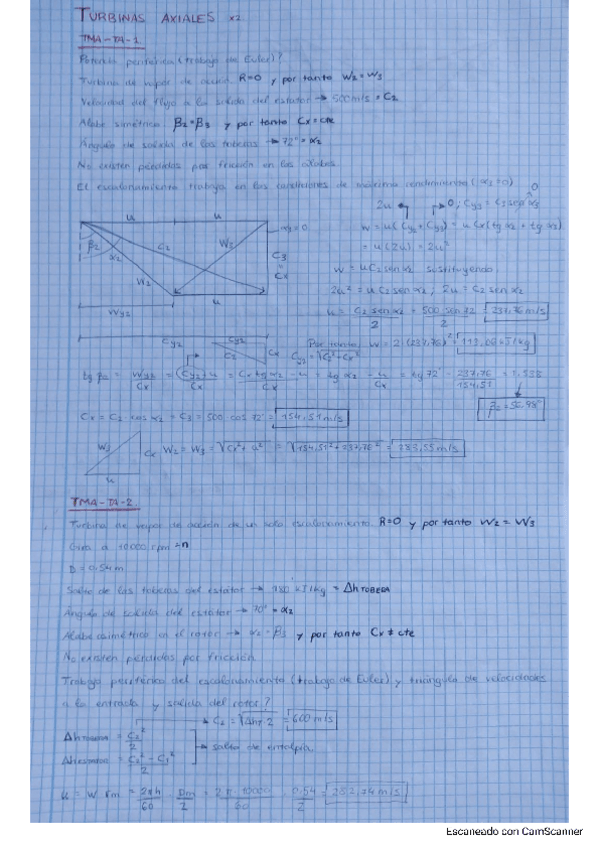 TURBINAS AXIALES x2
TMA-TA-1
Potencia periférica (trabajo de Euler)?
Turbina de vapor de acción R=0 y por tanto W2=W3
Velocidad del flujo a la salida del estator → 500 m/s = C2
Alabe simétrico β2=β3 y por tanto Cx=cte
Ángulo de salida de las toberas → 72° = α2
No existen pérdidas por fricción en los álabes
El escalonamiento trabaja en las condiciones de máximo rendimiento (α3=0)
w = u C2 sen α2 sustituyendo
2u² = u C2 sen α2; 2u = C2 sen α2
u = C2 sen α2 / 2 = 500 sen 72 / 2 = 237,76 m/s
Por tanto w = 2(237,76)² = 113,06 kJ/kg
β2 = 56.98°
Cx = C2 cos α2 = C3 = 500 cos 72° = 154,51 m/s
W2 = W3 = √Cx² + u² = √154,51² + 237,76² = 283,55 m/s
TMA-TA-2
Turbina de vapor de acción de un solo escalonamiento R=0 y por tanto W2 = W3
Gira a 10000 rpm = n
D = 0,54 m
Salto de las toberas del estátor → 180 kJ/kg = ΔhTOBERA
Ángulo de salida del estátor → 70° = α2
y por tanto Cx ≠ cte
No existen pérdidas por fricción
Trabajo periférico del escalonamiento (trabajo de Euler) y triángulo de velocidades
a la entrada y salida del rotor?
C2 = √ΔhT·2 = 600 m/s
salto de entalpía
u = W rm = 2πn/60 · Dm/2 = 2π·10000/60 · 0,54/2 = 282,74 m/s
Escaneado con CamScanner